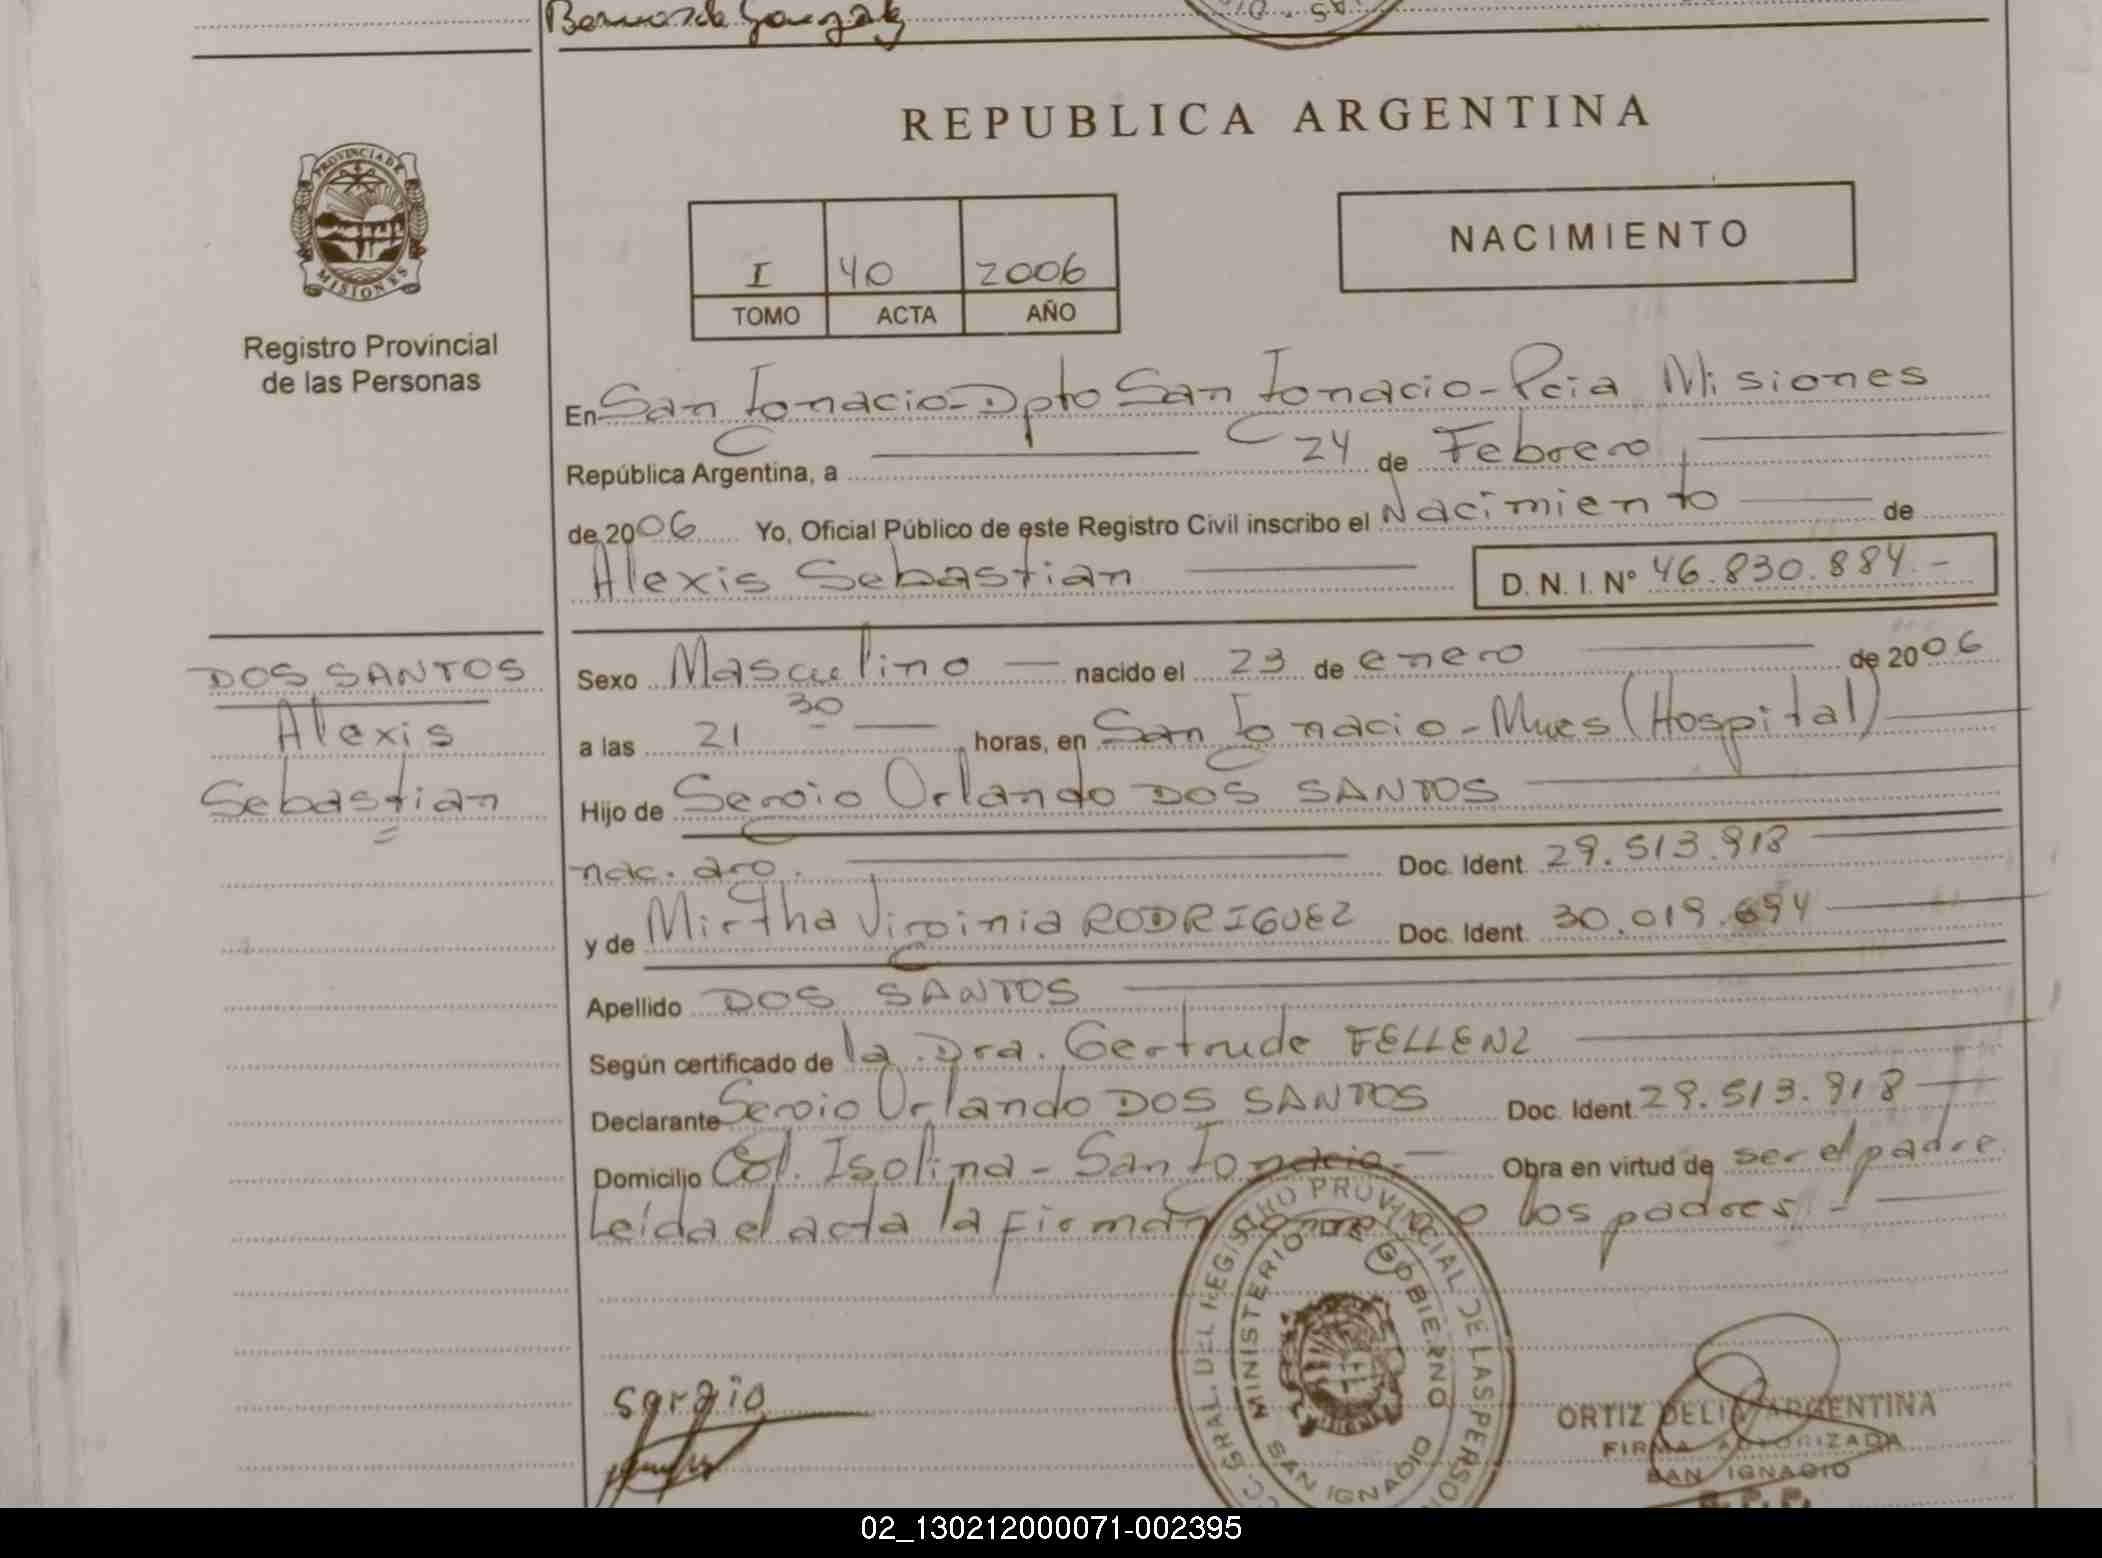 Bernarda Gonzalez
REPUBLICA ARGENTINA
PROVINCIA DE
MISIONES
Registro Provincial
de las Personas
NACIMIENTO
I 40 2006
TOMO ACTA AÑO
En San Ignacio - Dpto San Ignacio - Pcia Misiones
República Argentina, a 24 de Febrero
de 2006 Yo, Oficial Público de este Registro Civil inscribo el Nacimiento de
Alexis Sebastian D. N. I. Nº 46.830.884.-
DOS SANTOS
Alexis
Sebastian
Sexo Masculino nacido el 23 de enero de 2006
a las 21 30 horas, en San Ignacio - Mnes (Hospital)
Hijo de Sergio Orlando DOS SANTOS
nac. arg. Doc. Ident. 29.513.918
y de Mirtha Virginia RODRIGUEZ Doc. Ident. 30.019.694
Apellido DOS SANTOS
Según certificado de la Dra. Gertrude FELLENZ
Declarante Sergio Orlando DOS SANTOS Doc. Ident. 29.513.918
Domicilio Col. Isolina - San Ignacio.- Obra en virtud de ser el padre
Leída el acta la firman los padres.-
GRAL. DEL REGISTRO PROVINCIAL DE LAS PERSO
MINISTERIO DE GOBIERNO
SAN IGNACIO
Sergio
ORTIZ DELIA ARGENTINA
FIRMA AUTORIZADA
SAN IGNACIO
R.P.P.
02_130212000071-002395